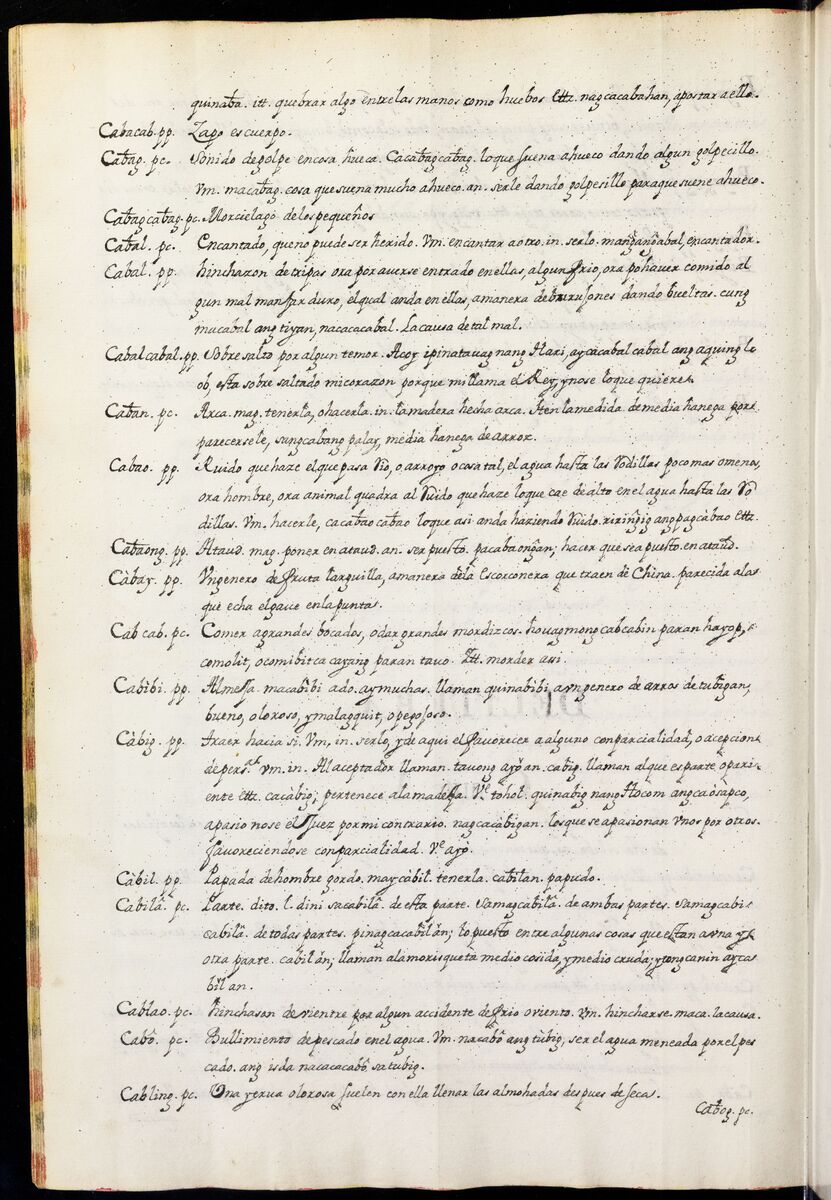 quinaba. itt. quebrar algo entre las manos como huebos ettz. nagcacabahan, apostar a ello.
Cabacab. pp. Zapo es cuerpo.
Cabag. pc. Sonido de golpe en cosa hueca. Cacabagcabag. lo que suena a hueco dando algun golpecillo.
Vm. macabag. cosa que suena mucho a hueco. an. serle dando golpesillo para que suene a hueco.
Cabagcabag. pc. Morcielago de los pequeños
Cabal. pc. Encantado, que no puede ser herido. Vm. encantar a otro. in. serlo. mangangabal, encantador.
Cabal. pp. hinchazon de tripas ora por averse entrado en ellas, algun frio, ora po haver comido al
gun mal manjar duro, el qual anda en ellas, a manera de burujones dando bueltas. cung
mucabal ang tiyan, nacacacabal. La causa de tal mal.
Cabal cabal. pp. Sobresalto por algun temor. Acoy ipinatavag nang Hari, ay cacabal cabal ang aquing lo
ob, esta sobre saltado mi corazon porque mi llama el Rey, y no se lo que quiere.
Caban. pc. Arca. mag. tenerla, o hacerla. in. la madera hecha arca. Iten la medida de media hanega por
parecersele, sungcabang palay, media hanega de arroz.
Cabao. pp. Ruido que haze el que pasa Vio, o, arroyo o cosa tal, el agua hasta las Vodillas poco mas o menos,
ora hombre, ora animal quadra al Vuido que haze lo que cae de alto en el agua hasta las Vo
dillas. Vm. hacerle, cacabao cabao lo que asi anda haziendo Vuido. ririnğig ang pagcàbao ettz.
Cabaong. pp. Ataud. mag. poner en ataud. an. ser puesto. pacabaongan; hacer que sea puesto en ataud.
Càbay. pp. Un genero de fruta larguilla, a manera dela Escorconera que traen de China. parecida a las
que echa el gaue en la puntas.
Cab cab. pc. Comer a grandes bocados, o dar grandes mordizcos. houag mong cabcabin paran hayop,
comolit, o comibit ca cayang paran tavo. Itt. morder asi.
Cabìbi. pp. Almeja. macabìbi ado. ay muchas. llaman quinabibi a vn genero de arros de tubigan,
bueno, oloroso, y malagquit, o pegojoso.
Càbig. pp. Traer hacia si. Vm, in. serlo, y de aqui el favorecer a alguno con parcialidad, o acepcion
de pers.as vm. in. Al aceptador llaman. tavong ayŏan. cabig. llaman al que es parte o pari-
ente ettz. cacàbig; pertenece a la madeja. V.e tohol. quinabig nang Hocom ang caòsàpco,
apasionose el Juez por mi contrario. nagcacàbigan. los que se apasionan vnos por otros.
favoreciendose con parcialidad. V.e ayò.
Càbil. pp. Papada de hombre gordo. may càbil. tenerla. cabilan. papudo.
Cabilâ. pc. Parte. dito. l. dini sa cabilâ. de esta parte. Samagcabilâ. de ambas partes. Samagcabi
cabilâ. de todas partes. pinagcacabilǎn; lo puesto entre algunas cosas que estan a vna y
otra parte. cabilǎn; llaman a la morisqueta medio cosida, y medio cruda; yyong canin ay cas
bil an.
Cablao. pc. hinchason de vientre por algun accidente de frio o viento. Vm. hincharse. maca. la causa.
Cabô. pc. Bullimiento de pescado en el agua. Vm. nacabô ang tùbig, ser el agua meneada por el pes
cado. ang isda nacacacabô sa tubig.
Cabling. pc. Una yerua olorosa suelen con ella llenar las almohadas despues de seca.
Cabog. pc.